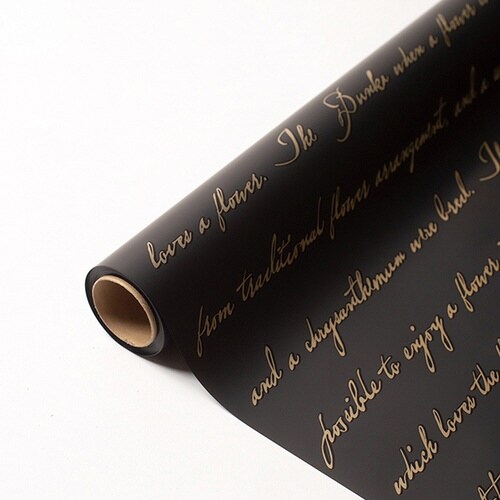 loves a flower. The Dunke when a flower
from traditional flower arrangement, and a
and a chrysanthemum were bred. Th
possible to enjoy a flower
which loves the